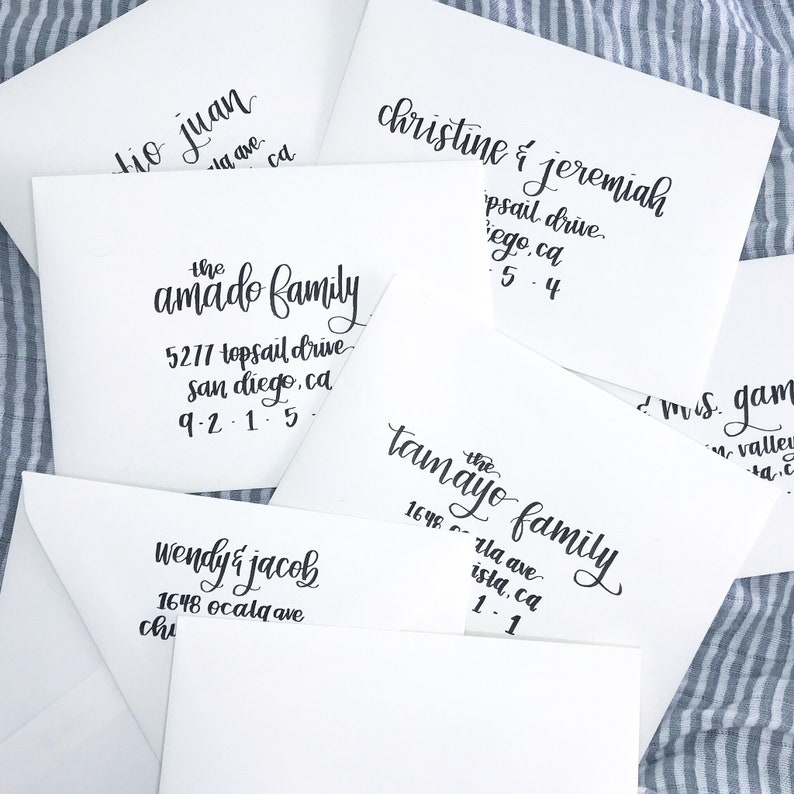 tio juan
ave
, ca
christine & jeremiah
drive
, ca
5 · 4
the
amado family
5277 topsail drive
san diego, ca
9 · 2 · 1 · 5 ·
& mrs.
valley
the
tamayo family
1648 ocala ave
, ca
1 · 1
wendy & jacob
1648 ocala ave